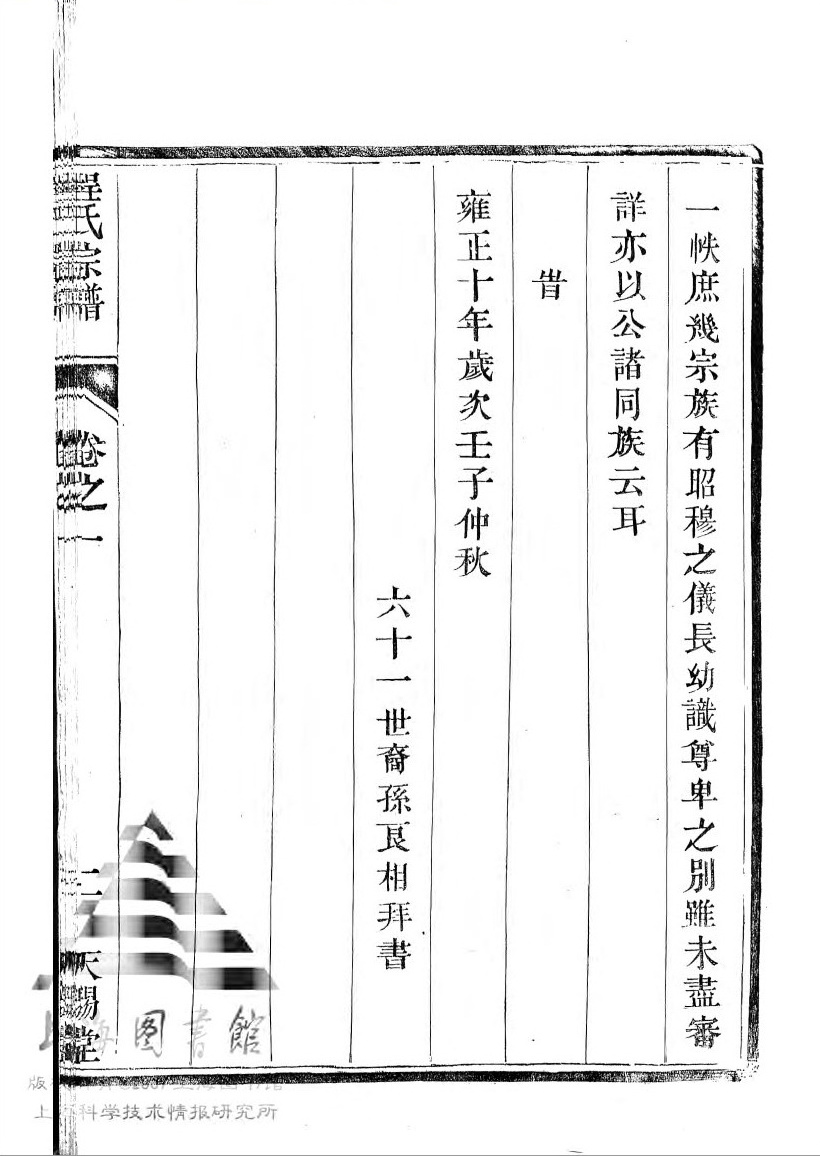 一帙庶幾宗族有昭穆之儀長幼識尊卑之別雖未盡審
詳亦以公諸同族云耳
旹
雍正十年歲次壬子仲秋
六十一世裔孫良相拜書
程氏宗譜
卷之一
二
天錫堂
上海图書館
上海科学技术情报研究所